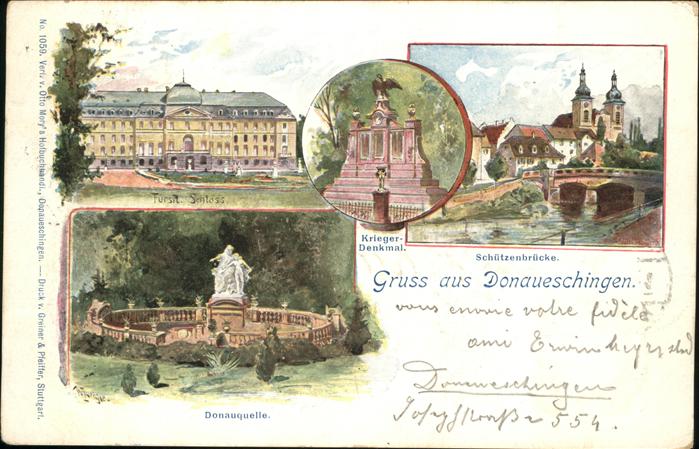 No. 1059. Verl. v. Otto Mory's Hofbuchhandl., Donaueschingen. — Druck v. Greiner & Pfeiffer, Stuttgart.
Fürstl. Schloss
Krieger-
Denkmal.
Schützenbrücke.
Gruss aus Donaueschingen.
vous envoie votre fidèle
ami Erwin
Donaueschingen
Josefstrasse 554.
Donauquelle.